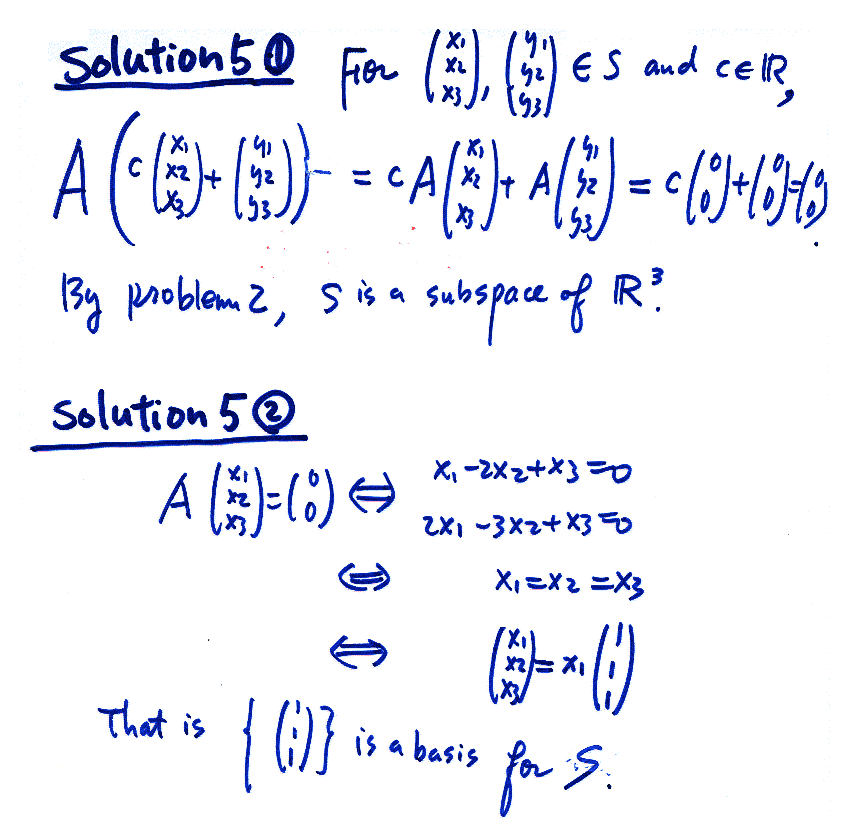 Solution 5 ① For (x1 x2 x3), (y1 y2 y3) ∈ S and c∈ℝ,
A (c (x1 x2 x3) + (y1 y2 y3)) = c A (x1 x2 x3) + A (y1 y2 y3) = c (0 0) + (0 0) = (0 0).
By problem 2, S is a subspace of ℝ³.
Solution 5 ②
A (x1 x2 x3) = (0 0) ⇔ x1 - 2x2 + x3 = 0
2x1 - 3x2 + x3 = 0
⇔ x1 = x2 = x3
⇔ (x1 x2 x3) = x1 (1 1 1)
That is { (1 1 1) } is a basis for S.